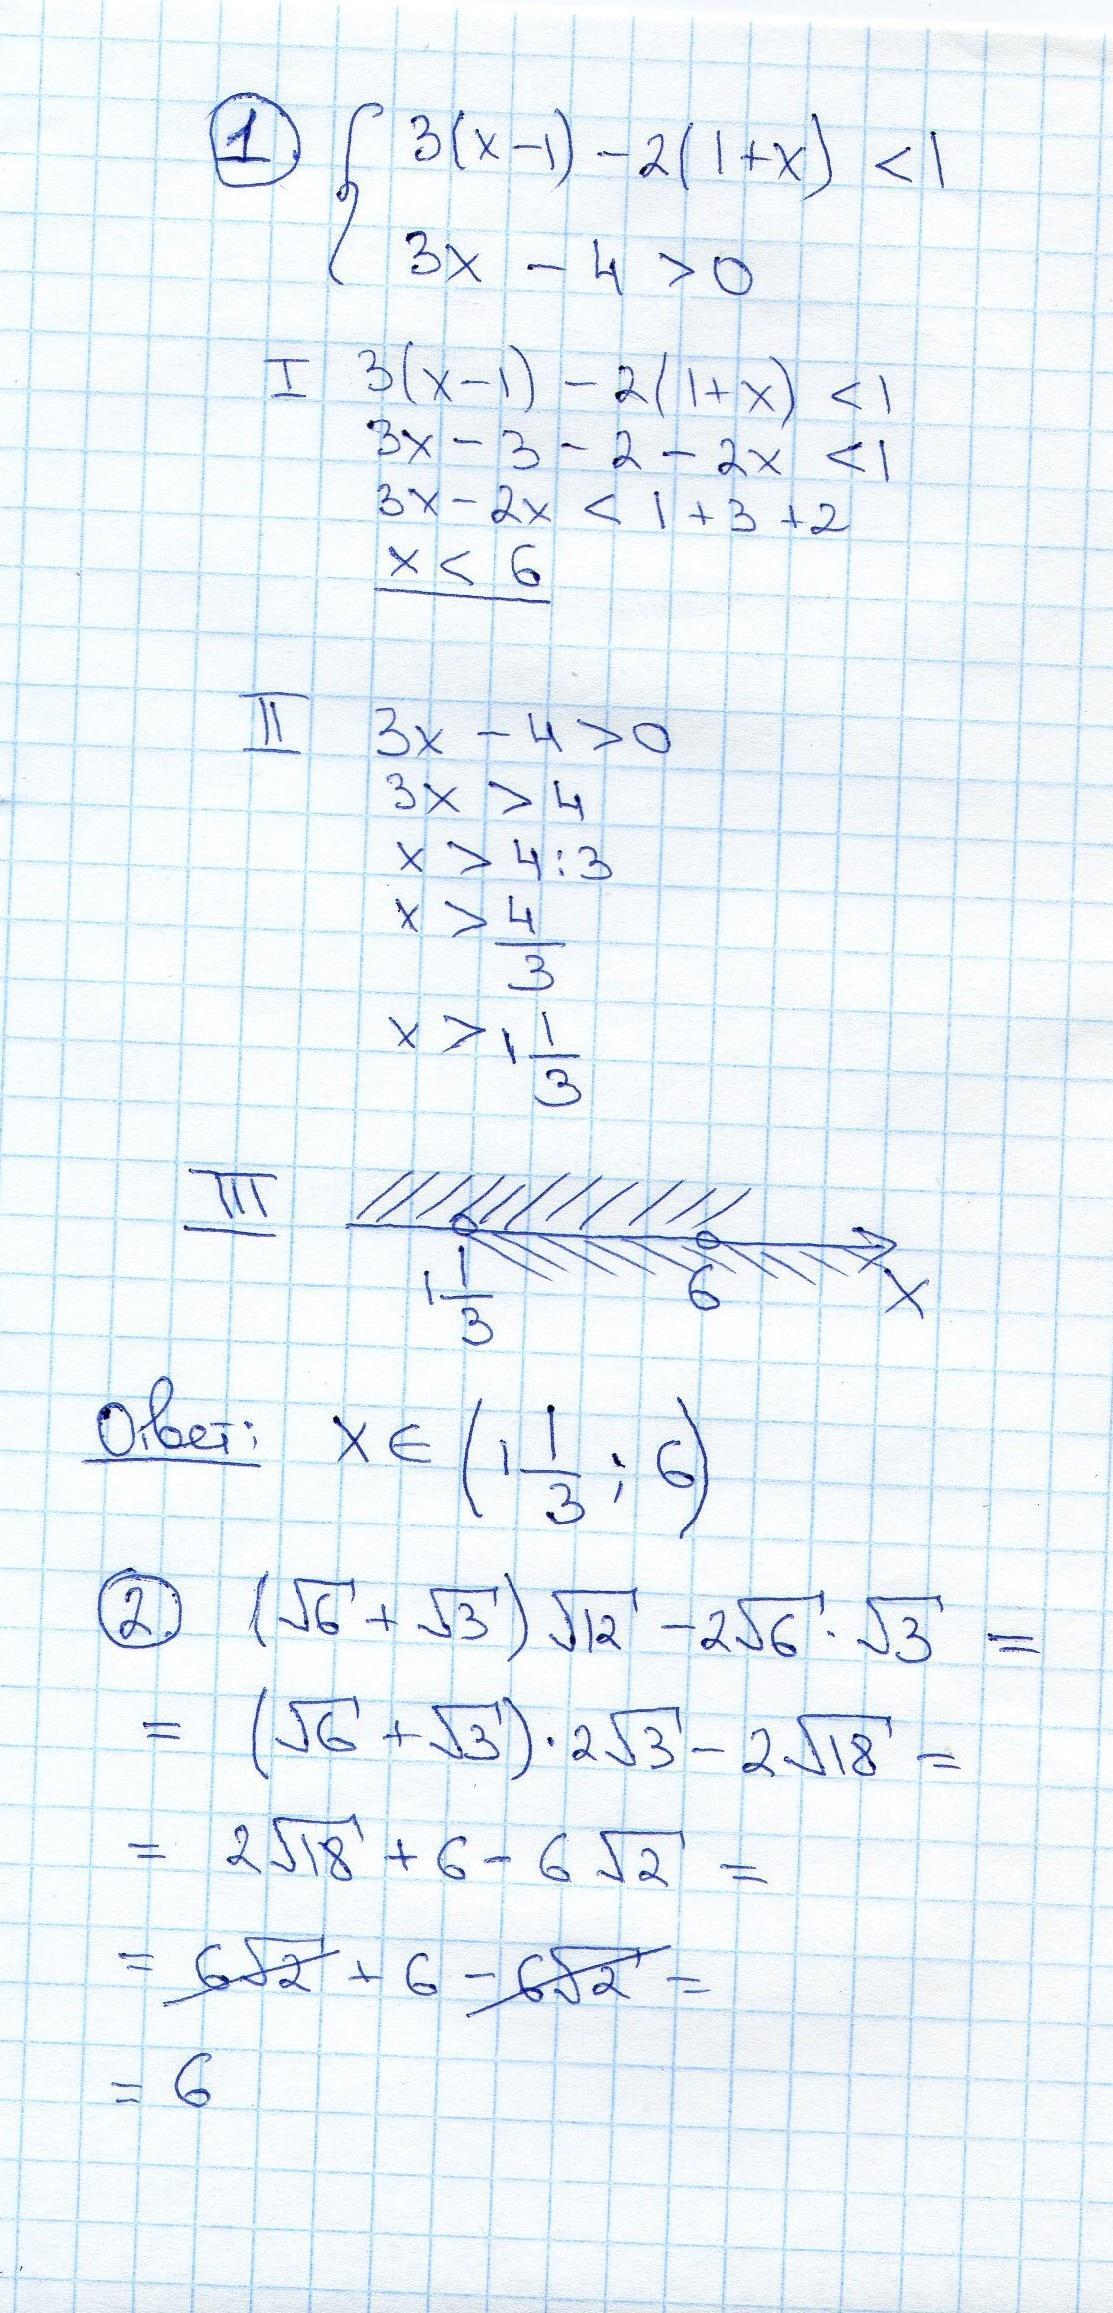 1. { 3(x-1) - 2(1+x) < 1
3x - 4 > 0
I 3(x-1) - 2(1+x) < 1
3x - 3 - 2 - 2x < 1
3x - 2x < 1 + 3 + 2
x < 6
II 3x - 4 > 0
3x > 4
x > 4:3
x > 4/3
x > 1 1/3
III
1 1/3 6 x
Ответ: x ∈ (1 1/3 ; 6)
2. (√6 + √3)√12 - 2√6 · √3 =
= (√6 + √3) · 2√3 - 2√18 =
= 2√18 + 6 - 6√2 =
= 6√2 + 6 - 6√2 =
= 6